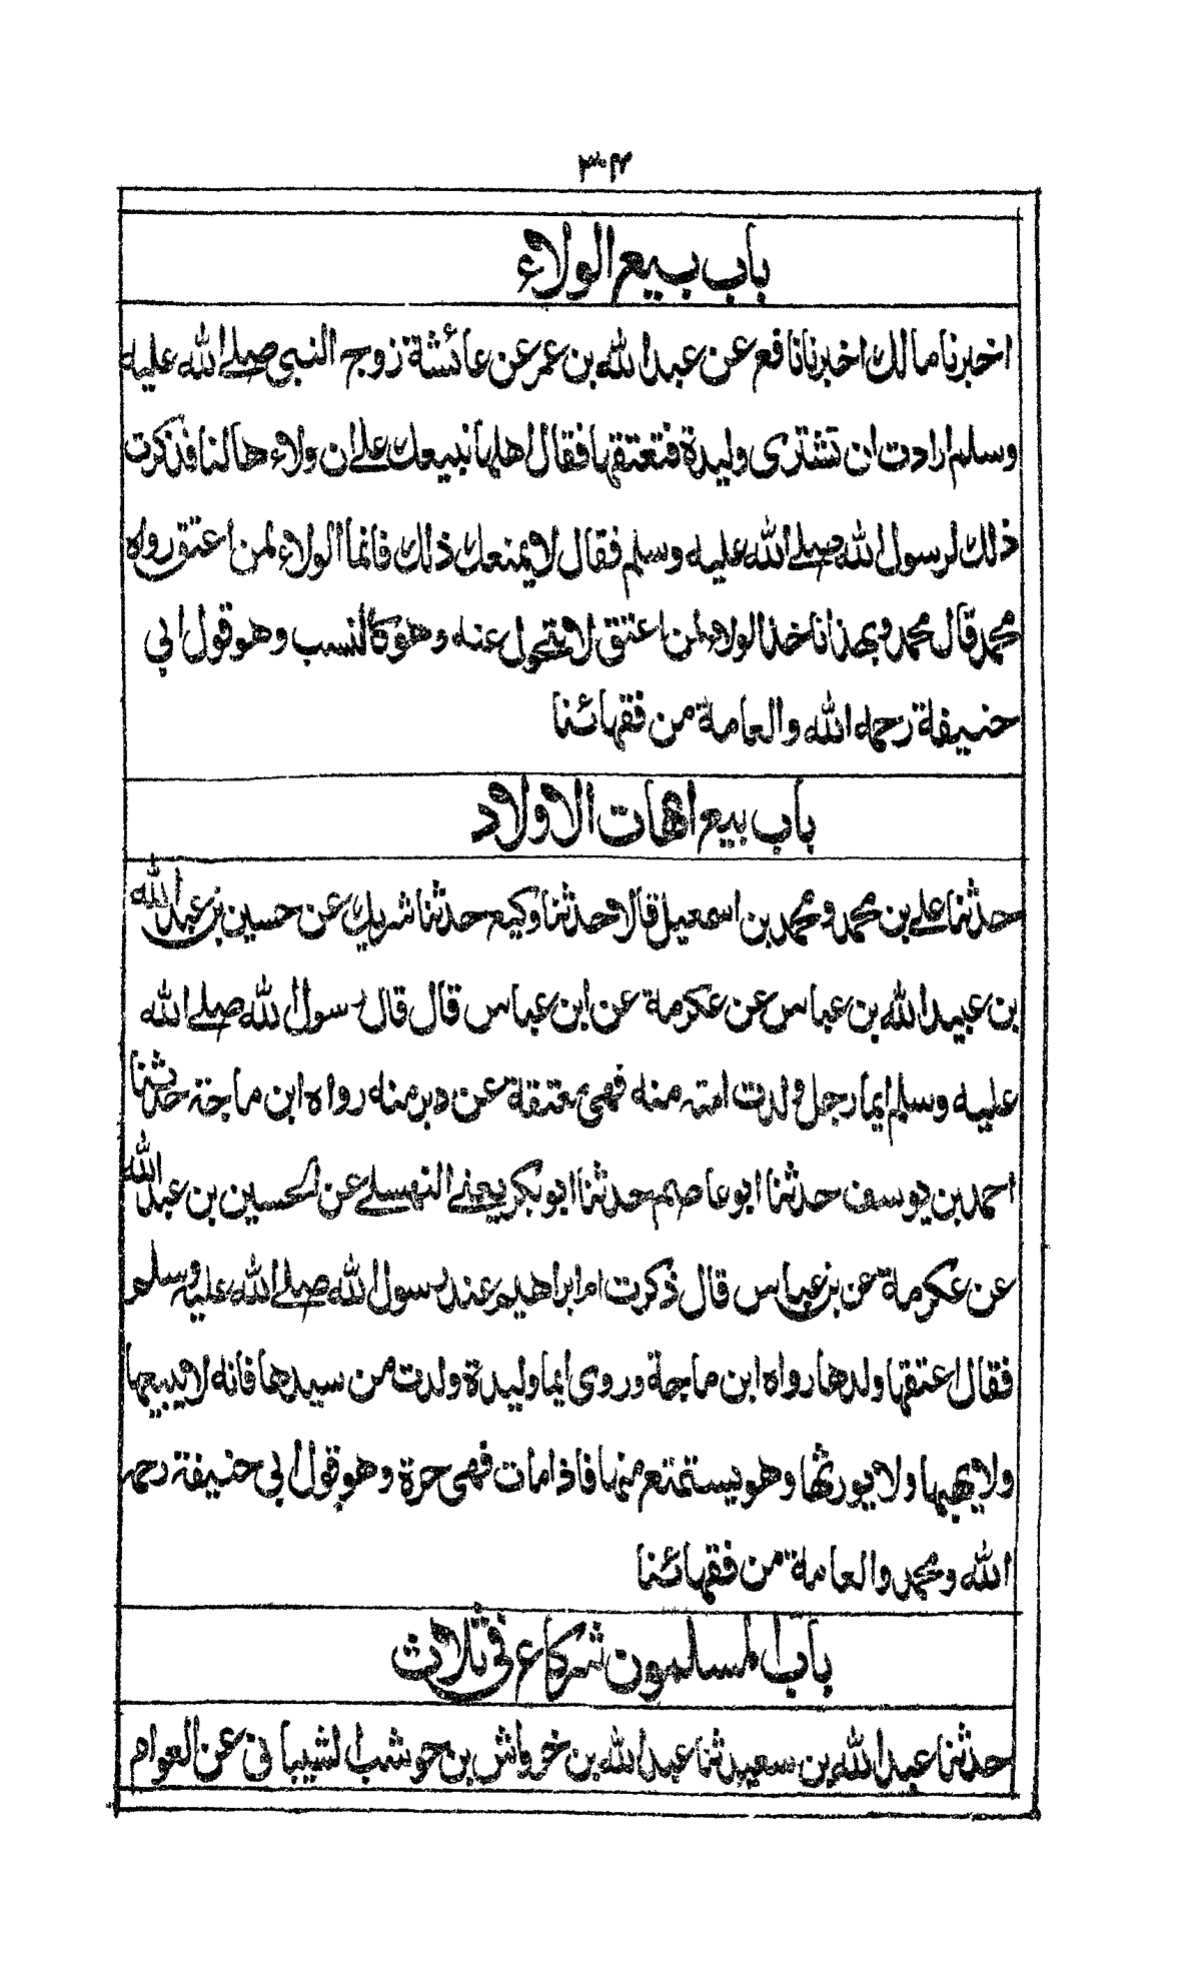 ٣٠٢
باب بيع الولاء
اخبرنا مالك اخبرنا نافع عن عبد الله بن عمر عن عائشة زوج النبي صلے الله عليه
وسلم ارادت ان تشتری وليدة فتعتقها فقال اهلها نبيعك علے ان ولاءها لنا فذكرت
ذلك لرسول الله صلے الله عليه وسلم فقال لا يمنعك ذلك فانما الولاء لمن اعتق رواه
محمد قال محمد وبهذا ناخذ الولاء لمن اعتق لا يتحول عنه وهو كالنسب وهو قول ابي
حنيفة رحمه الله والعامة من فقهائنا
باب بيع امهات الاولاد
حدثنا علے بن محمد ومحمد بن اسمعيل قالا حدثنا وكيع حدثنا شريك عن حسين بن عبد الله
بن عبيد الله بن عباس عن عكرمة عن ابن عباس قال قال رسول الله صلے الله
عليه وسلم ايما رجل ولدت امته منه فهي معتقة عن دبر منه رواه ابن ماجة حدثنا
احمد بن يوسف حدثنا ابو عاصم حدثنا ابو بكر يعنے النهسلے عن الحسين بن عبد الله
عن عكرمة عن بن عباس قال ذكرت ام ابراهيم عند رسول الله صلے الله عليه وسلم
فقال اعتقها ولدها رواه ابن ماجة وروی ايما وليدة ولدت من سيدها فانه لا يبيعها
ولا يهبها ولا يورثها وهو يستمتع منها فاذا مات فهي حرة وهو قول ابي حنيفة رحمه
الله ومحمد والعامة من فقهائنا
باب المسلمون شركاء في ثلاث
حدثنا عبد الله بن سعيد ثنا عبد الله بن خرواش بن حوشب الشيباني عن العوام